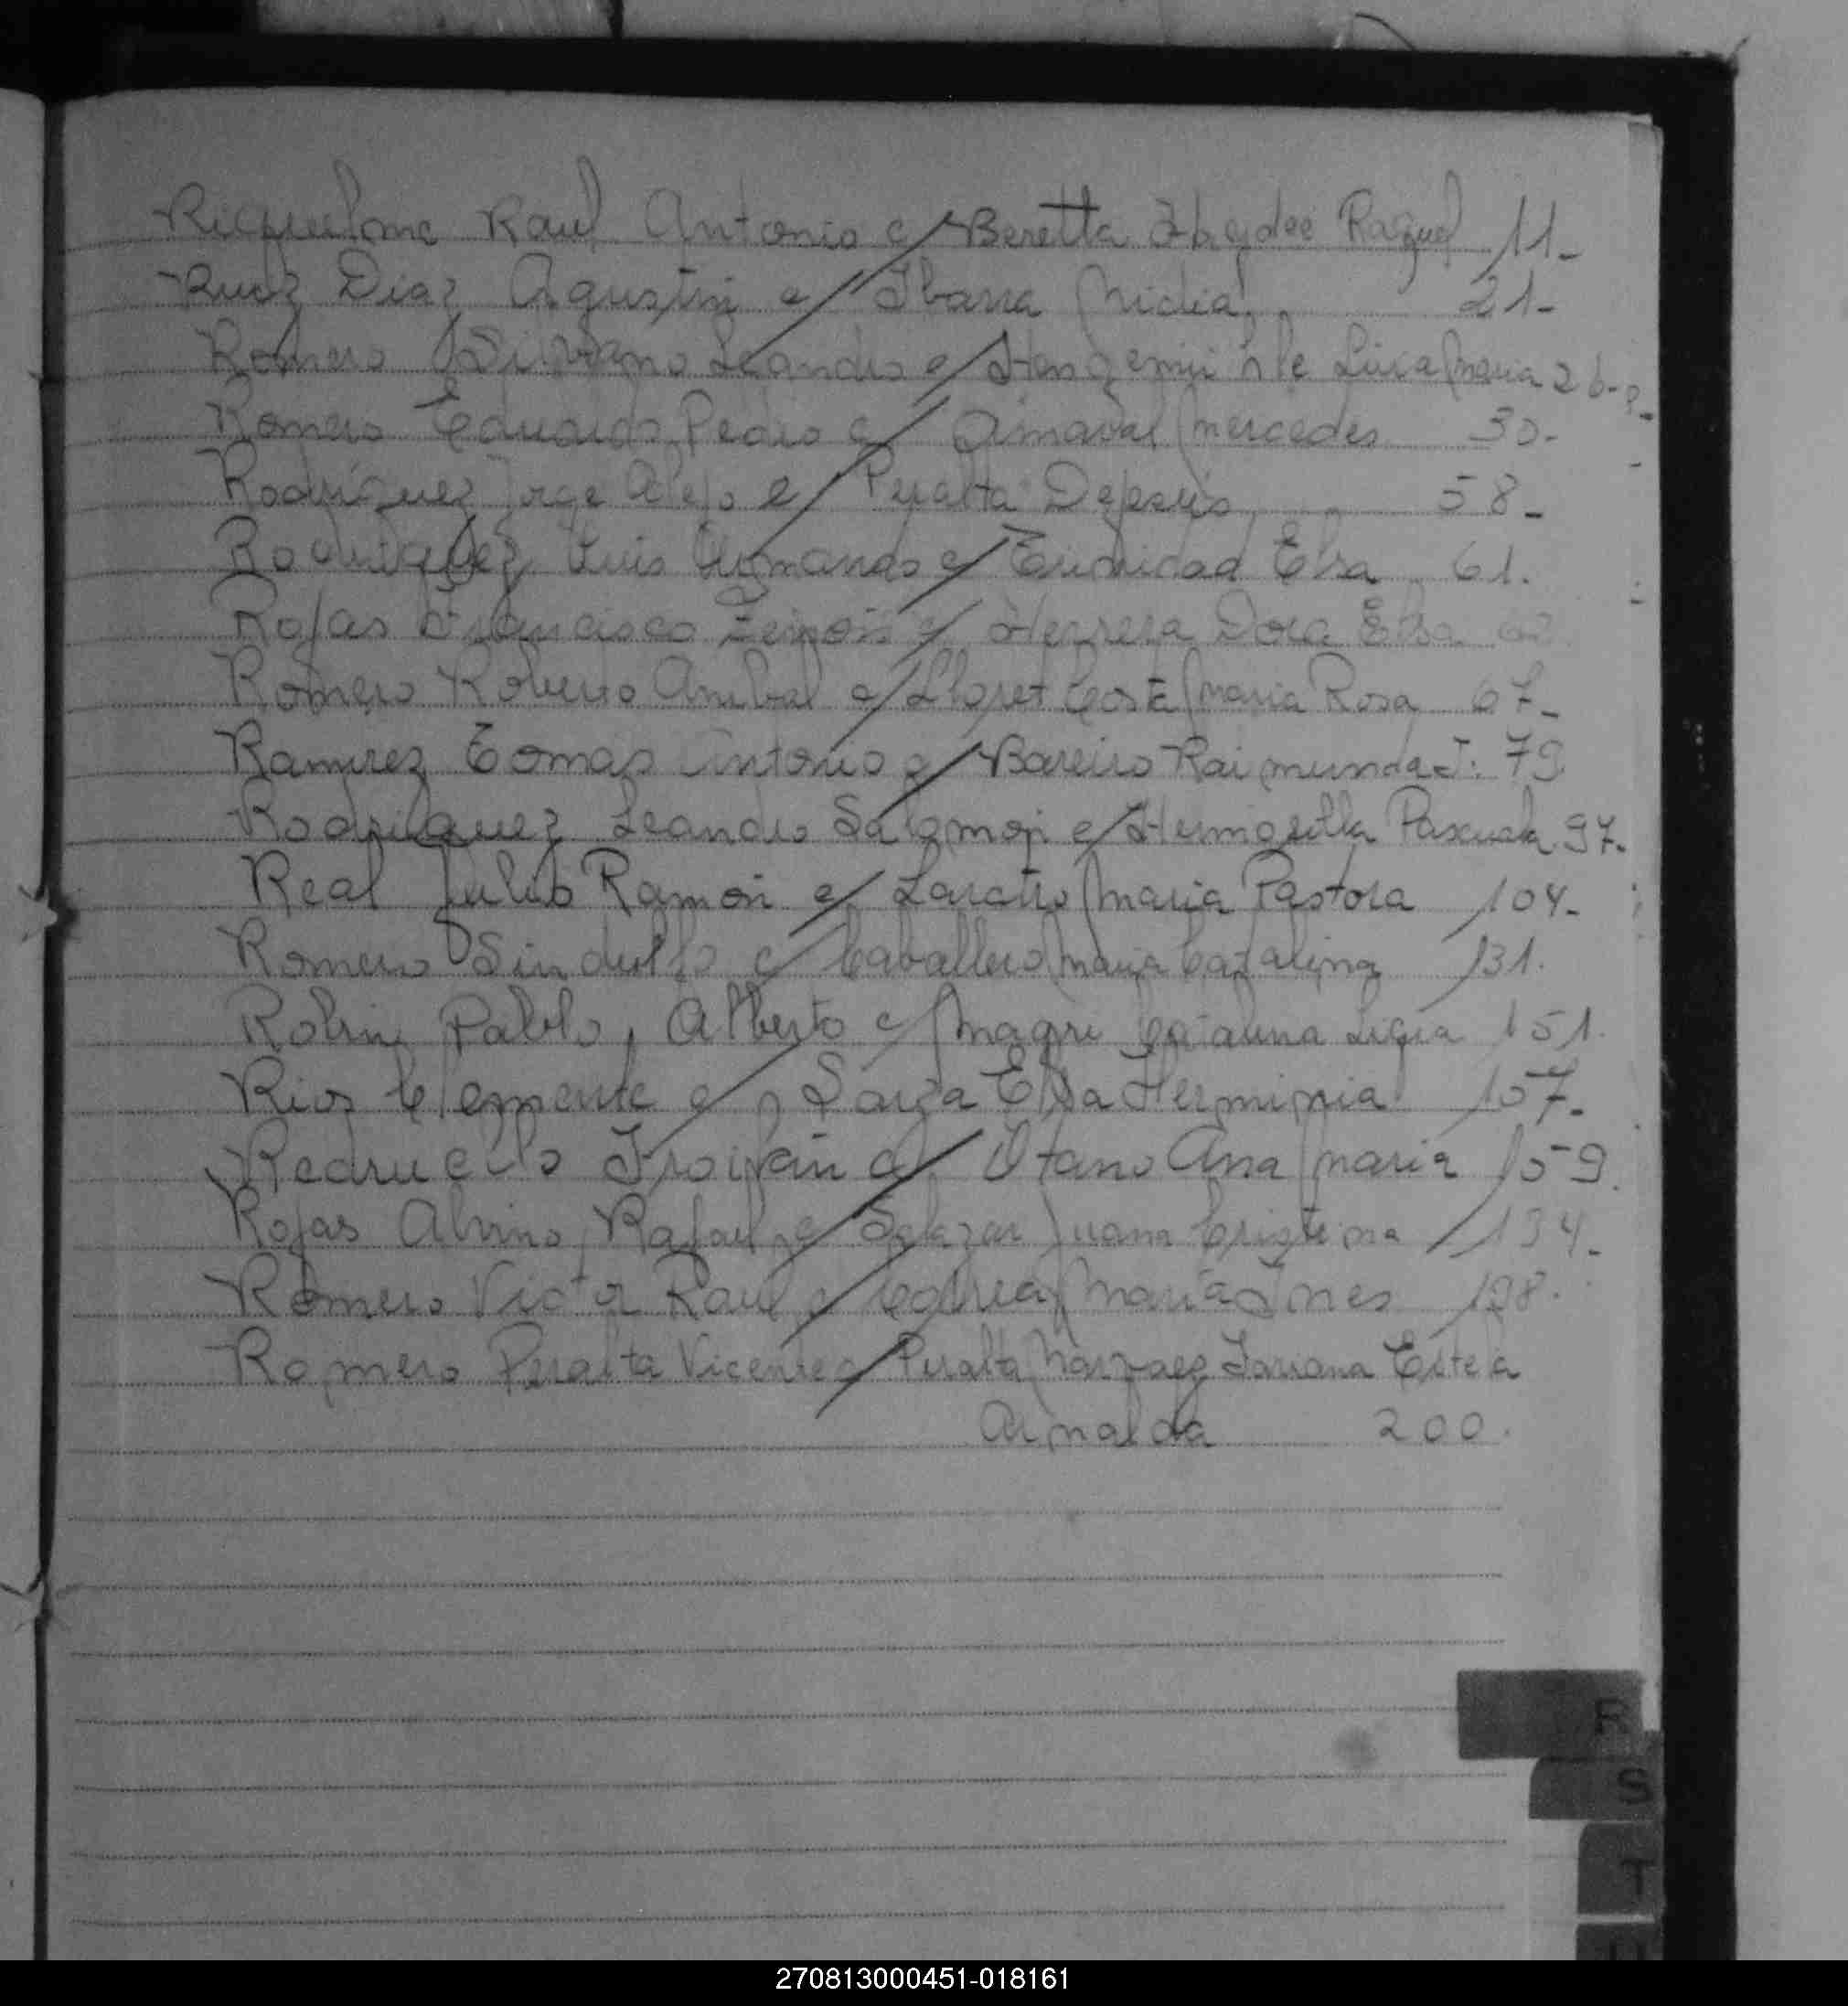 Riquelme Raul Antonio c/ Beretta Haydee Raquel 11-
Ruiz Diaz Agustin c/ Ibarra Nidia 21-
Romero Silvano Leandro c/ Luisa Maria 26-
Romero Eduardo Pedro c/ Mercedes 30-
Rodriguez Jorge Alejo c/ Peralta Dejesus 58-
Rodriguez Luis c/ Trinidad Elsa 61.
Rojas Francisco c/ Herrera Dora Elsa
Romero Roberto Anibal c/ Lloret Maria Rosa 67-
Ramirez Tomas Antonio c/ Bareiro Raimunda J. 79.
Rodriguez Leandro Salomon c/ Hermosilla Pascuala 97-
Real Julio Ramon c/ Maria Pastora 104-
Romero Sindulfo c/ Caballero Maria Catalina 131.
Robin Pablo Alberto c/ Magri Catalina Ligia 151.
Rios Clemente c/ Elsa Herminia 157-
Redruello Froilan c/ Otano Ana Maria 159.
Rojas Alvino Rafael c/ Salazar Juana Cristina 134-
Romero Victor Raul c/ Correa Maria Ines 198.
Romero Peralta Vicente c/ Peralta Narvaez Estela
Arnalda 200.
R
S
T
U
270813000451-018161